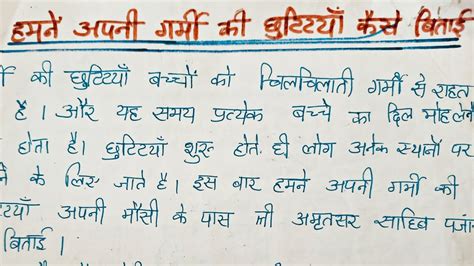 हमने अपनी गर्मी की छुटिटयाँ कैसे बिताई
की छुटिटयाँ बच्चों को चिलचिलाती गर्मी से राहत
है। और यह समय प्रत्येक बच्चे का दिल मोह लेने
होता है। छुटिटयाँ शुरु होते ही लोग अनेक स्थानों पर
ने के लिए जाते है। इस बार हमने अपनी गर्मी की
टयाँ अपनी मौसी के पास श्री अमृतसर साहिब पंजा
बिताई।